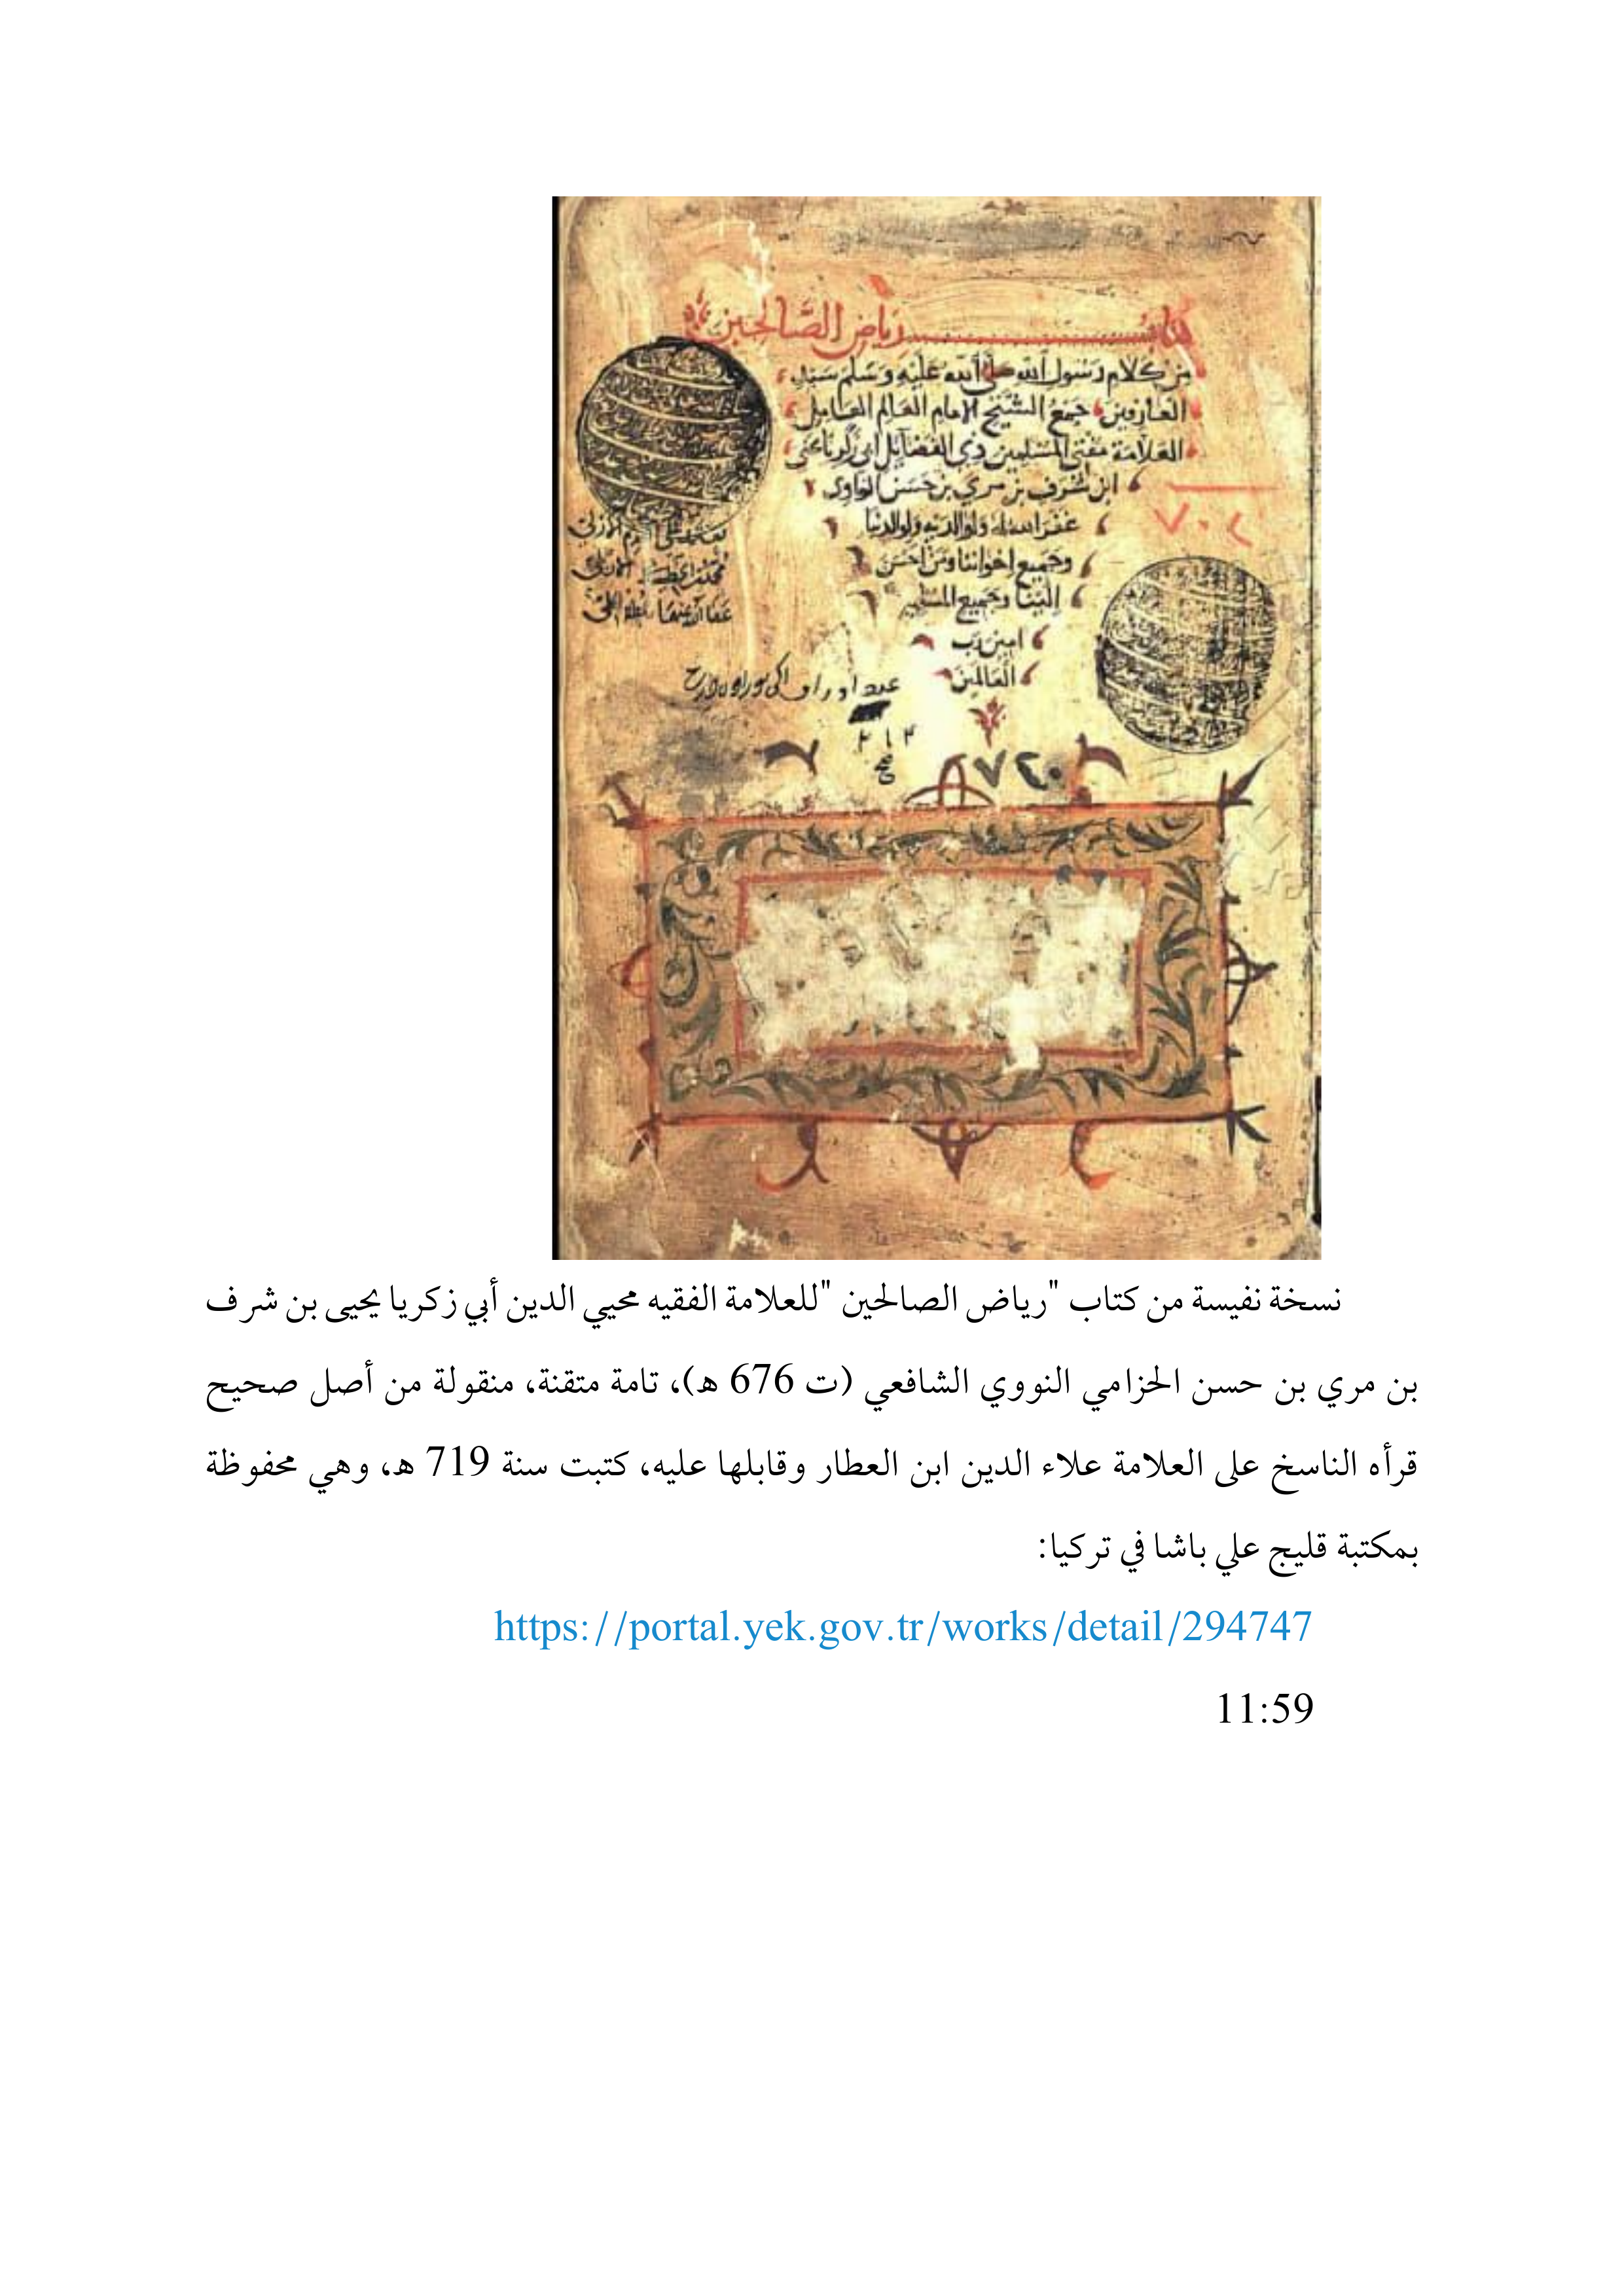 كتاب رياض الصالحين
من كلام رسول الله صلى الله عليه وسلم سيد
العارفين جمع الشيخ الامام العالم العامل
العلامة مفتي المسلمين ذي الفضايل ابي زكريا يحيى
ابن شرف بن مري بن حسن النواوي
غفر الله له ولوالديه ولوالدينا
وجميع اخواننا ومن احسن
الينا وجميع المسلمين
امين رب
العالمين
عدد اوراق
٢١٢
٧٤٠
نسخة نفيسة من كتاب "رياض الصالحين" للعلامة الفقيه محيي الدين أبي زكريا يحيى بن شرف
بن مري بن حسن الحزامي النووي الشافعي (ت 676 هـ)، تامة متقنة، منقولة من أصل صحيح
قرأه الناسخ على العلامة علاء الدين ابن العطار وقابلها عليه، كتبت سنة 719 هـ، وهي محفوظة
بمكتبة قليج علي باشا في تركيا:
https://portal.yek.gov.tr/works/detail/294747
11:59